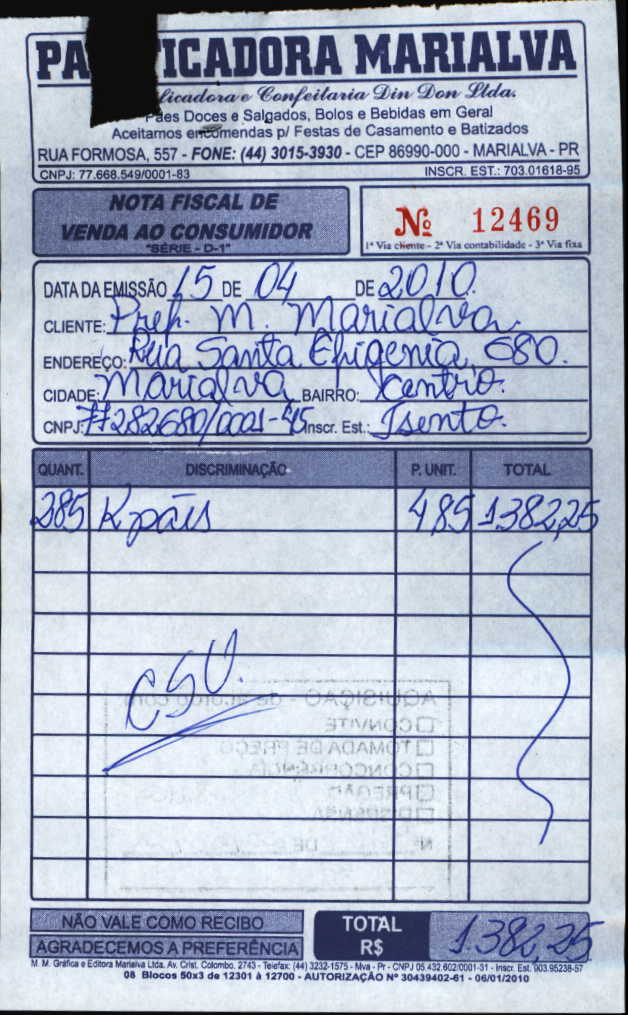 PA IFICADORA MARIALVA
ificadora e Confeitaria Din Don Ltda.
Pães Doces e Salgados, Bolos e Bebidas em Geral
Aceitamos encomendas p/ Festas de Casamento e Batizados
RUA FORMOSA, 557 - FONE: (44) 3015-3930 - CEP 86990-000 - MARIALVA - PR
CNPJ: 77.668.549/0001-83 INSCR. EST.: 703.01618-95
NOTA FISCAL DE
VENDA AO CONSUMIDOR
"SÉRIE - D-1"
Nº 12469
1ª Via cliente - 2ª Via contabilidade - 3ª Via fixa
DATA DA EMISSÃO 15 DE 04 DE 2010.
CLIENTE: Pref. M. Marialva.
ENDEREÇO: Rua Santa Efigenia, 680.
CIDADE: Marialva BAIRRO: Centro.
CNPJ: 77282680/0001-45 Inscr. Est.: Isento.
QUANT. DISCRIMINAÇÃO P. UNIT. TOTAL
285 K pães 4,85 1.382,25
CSU.
AQUISIÇÃO - de acordo com
CONVITE
TOMADA DE PREÇO
CONCORRÊNCIA
PREGÃO
DISPENSA
Nº DE
NÃO VALE COMO RECIBO
AGRADECEMOS A PREFERÊNCIA
TOTAL
R$ 1.382,25
M. M. Gráfica e Editora Marialva Ltda. Av. Crist. Colombo, 2743 - Telefax: (44) 3232-1575 - Mva - Pr - CNPJ 05.432.602/0001-31 - Inscr. Est. 903.95238-57
08 Blocos 50x3 de 12301 à 12700 - AUTORIZAÇÃO Nº 30439402-61 - 06/01/2010